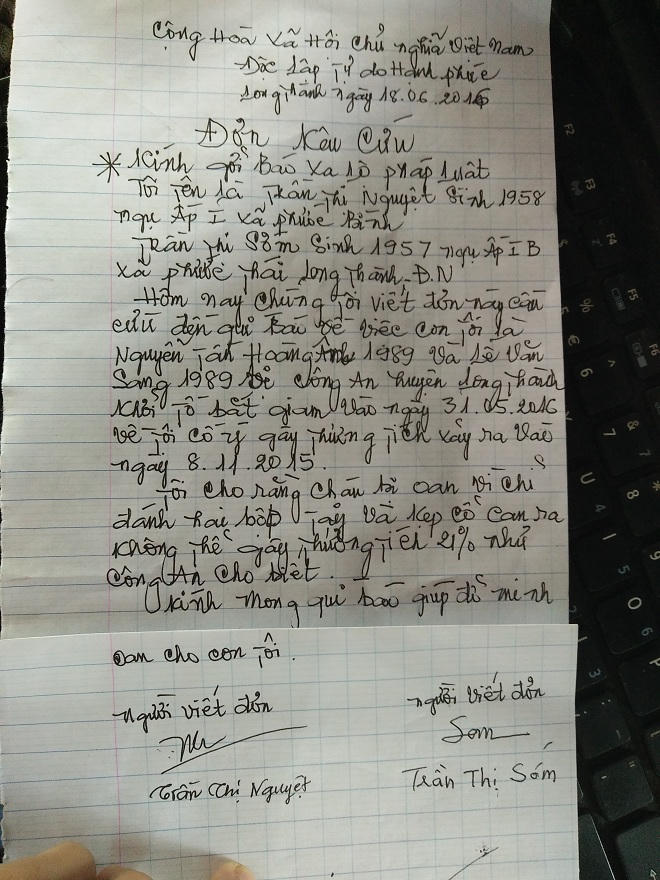 Cộng Hoà Xã Hội Chủ nghĩa Việt Nam
Độc Lập Tự do Hạnh phúc
Long Thành ngày 18.06.2016
Đơn Kêu Cứu
* Kính gởi Báo Xa Lộ pháp Luật
Tôi Tên là Trần Thị Nguyệt Sinh 1958
ngụ Ấp I xã phước Bình
Trần Thị Sớm Sinh 1957 ngụ Ấp I B
xã phước Thái Long Thành - Đ.N
Hôm nay chúng tôi viết đơn này cầu
cứu đến quí Báo về việc con tôi là
Nguyễn Tấn Hoàng Anh 1989 và Lê Văn
Sang 1989 bị Công An huyện Long Thành
khởi tố bắt giam vào ngày 31.05.2016
về tội cố ý gây thương tích xảy ra vào
ngày 8.11.2015.
Tôi cho rằng cháu bị oan vì chỉ
đánh hai bộp tay và kẹp cổ can ra
không thể gây thương tích 21% như
Công An cho biết.
kính mong quí báo giúp đỡ minh
oan cho con tôi.
người viết đơn
người viết đơn
Som
Trần Thị Nguyệt
Trần Thị Sớm